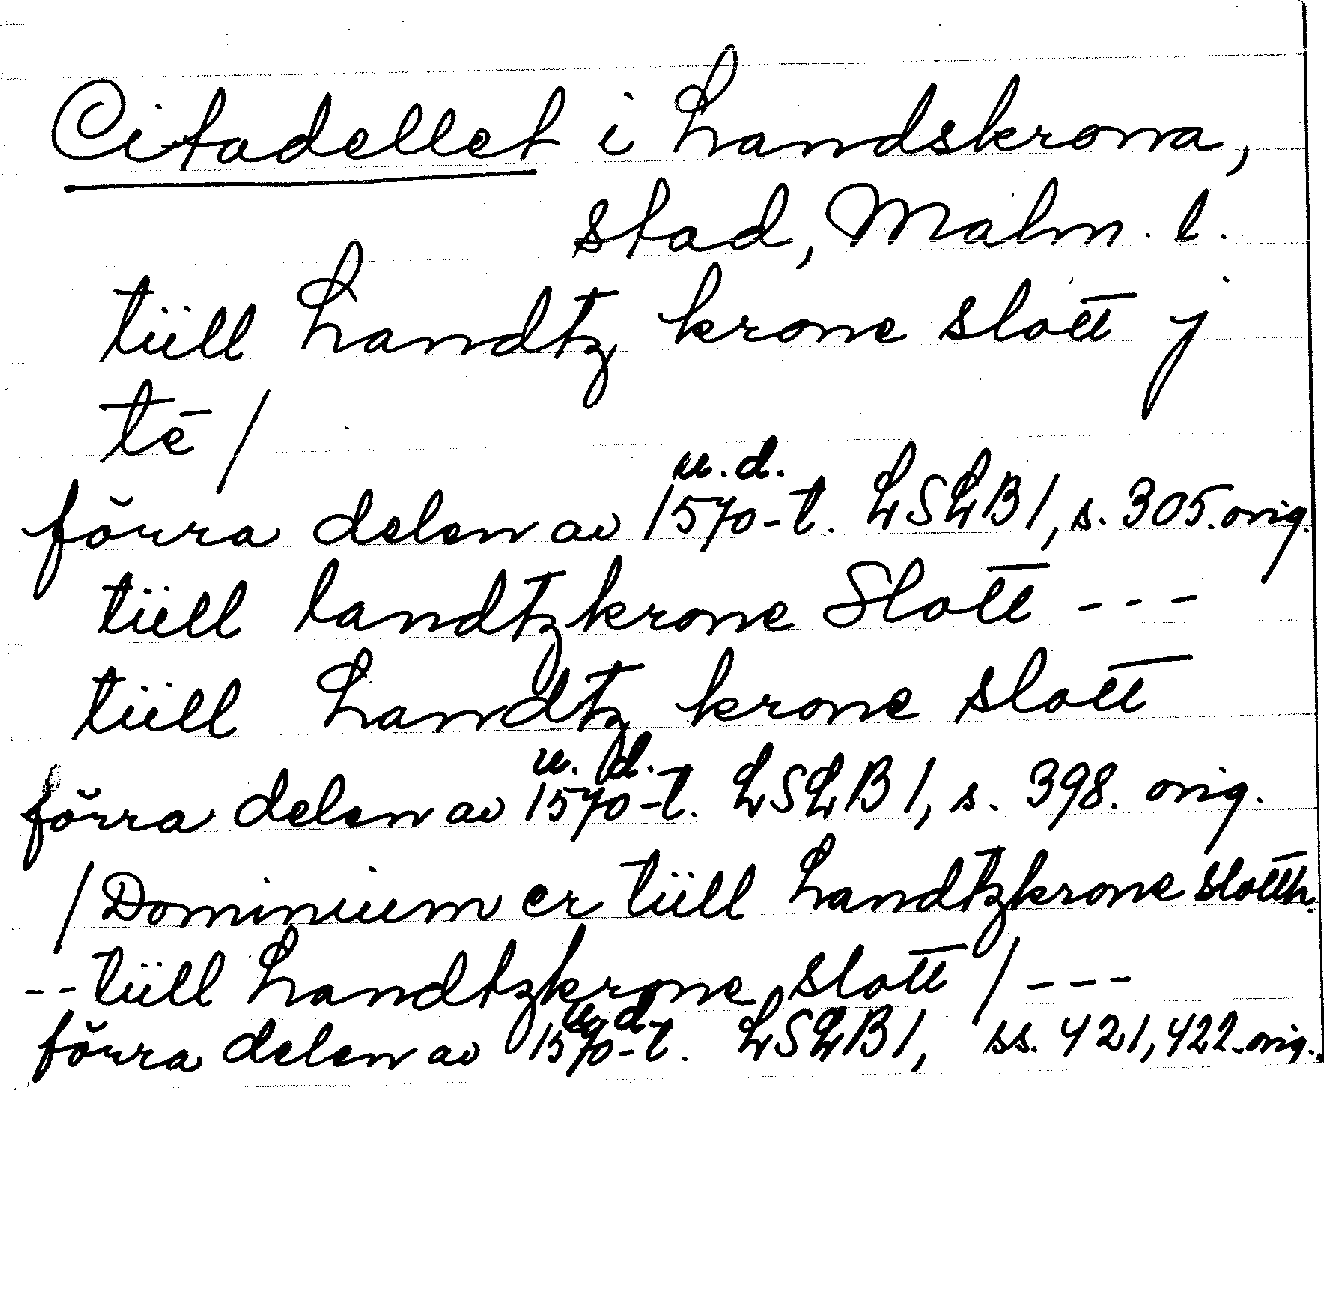 Citadellet i Landskrona,
stad, Malm. l.
tiill Landtz krone slott j
tē /
u.d.
förra delen av 1570-t. LSLB 1, s. 305. orig.
tiill landtzkrone Slott ---
tiill Landtz krone slott
u. d.
förra delen av 1570-t. LSLB 1, s. 398. orig.
/Dominium er tiill Landtzkrone slotth.
--tiill Landtzkrone slott /---
u d.
förra delen av 1570-t. LSLB 1, ss. 421, 422. orig.